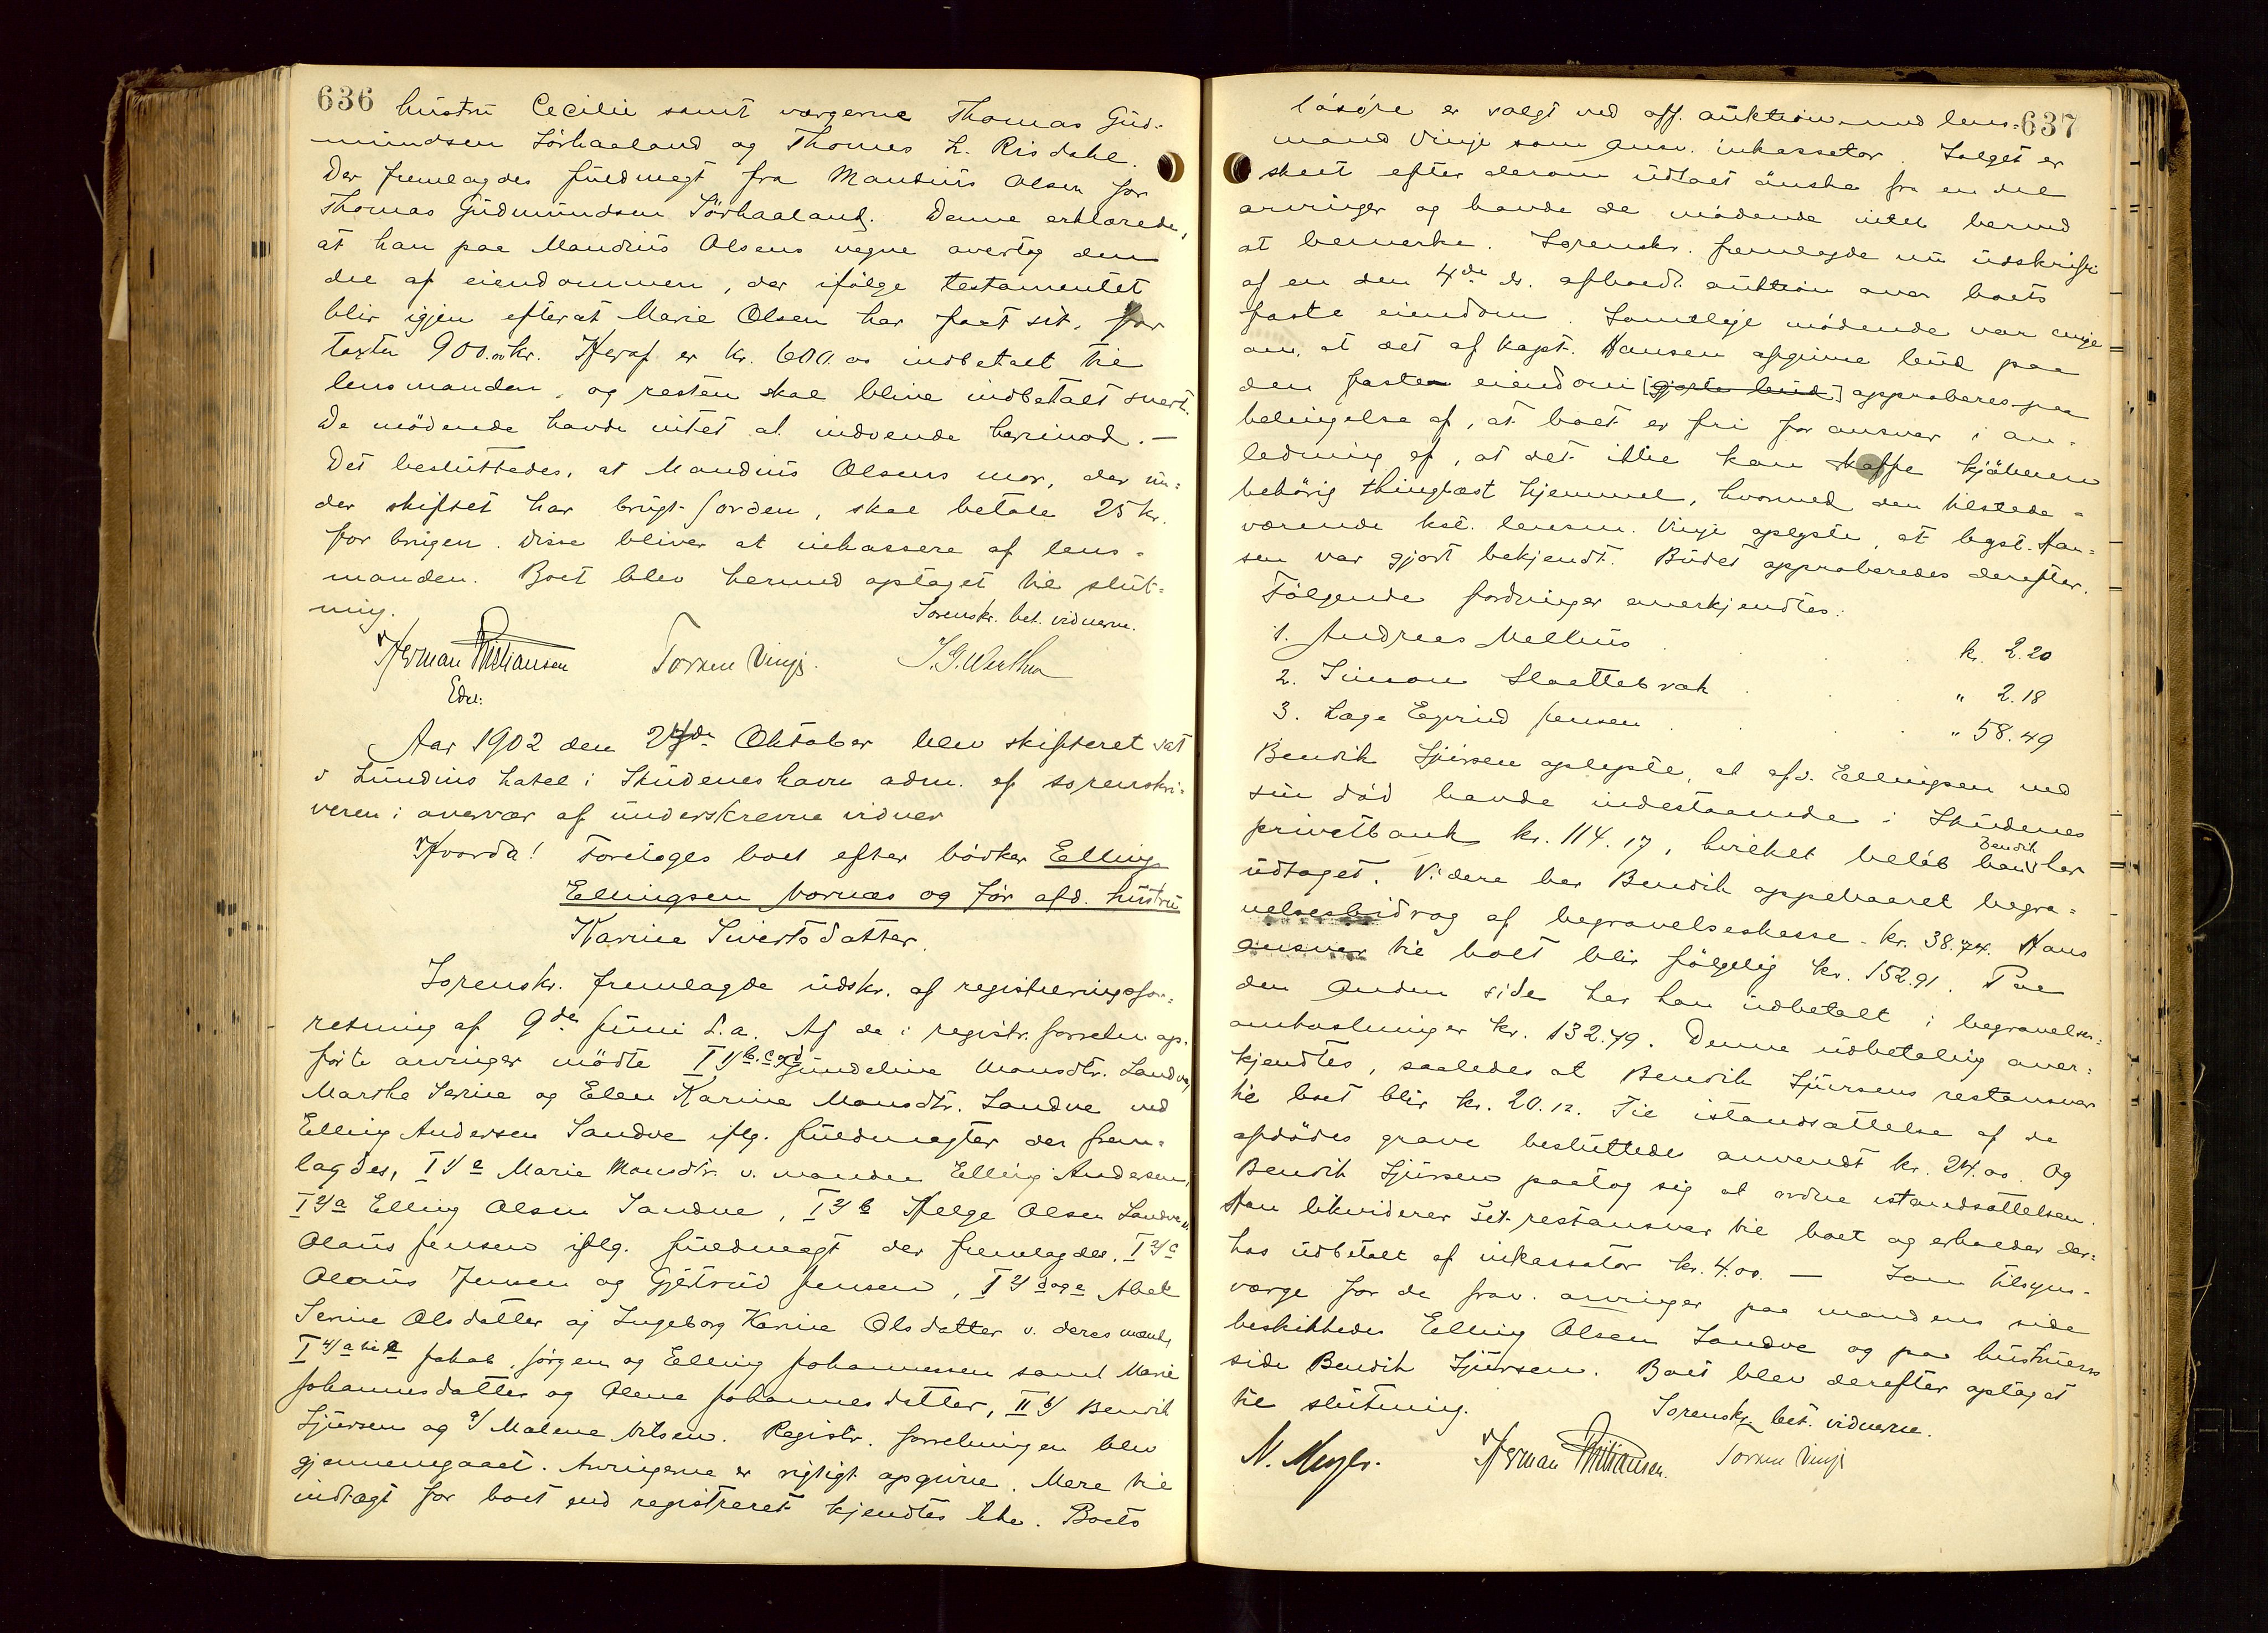 636
hustru Cecilie samt vægerne Thomas Gud-
mundsen Sörhaaland og Thomas L. Risdahl.
Der fremlagdes fuldmagt fra Mandius Olsen for
Thomas Gudmundsen Sörhaaland. Denne erklærede,
at han paa Mandius Olsens vegne overtog den
del af eiendommen, der ifölge testamentet
blir igjen efterat Marie Olsen har faat sit, for
taxten 900.00 kr. Heraf er kr. 600.00 indbetalt til
lensmanden, og resten skal blive indbetalt snart.
De mödende havde intet at indvende herimod. —
Det besluttedes, at Mandius Olsens mor, der un-
der skiftet har brugt jorden, skal betale 25 kr.
for brugen. Disse bliver at inkassere af lens-
manden. Boet blev hermed optaget til slut-
ning.
Sorenskr. bet. vidnerne.
Herman Kristiansen Torsen Vinje. J. G. Werthen
Edsv.
Aar 1902 den 24de Oktober blev skifteret sat
i Lundins hotel i Skudeneshavn adm. af sorenskri-
veren i overvær af underskrevne vidner
Hvorda! Foretoges boet efter bödker Elling
Ellingsen Vornæs og för afd. hustru
Karine Sivertsdatter.
Sorenskr. fremlagde udskr. af registreringsfor-
retning af 9de Juni d.a. Af de i registr. forretn. op-
förte arvinger mödte I 1) b, c og d Gundeline Monsdtr. Sandve,
Marthe Serine og Elen Karine Monsdtr. Sandve ved
Elling Andersen Sandve iflg. fuldmagter der frem-
lagdes, I 1/ a Marie Monsdtr. v. manden Elling Andersen,
I 2/ a Elling Olsen Sandve, I 2/ b Helge Olsen Sandve v.
Olaus Jensen iflg. fuldmagt der fremlagdes, I 2/ c
Olaus Jensen og Gjertrud Jensen, I 2/ d og e Abel
Serine Olsdatter og Ingeborg Karine Olsdatter v. deres mænd,
I 4/ a til e Jakob, Jörgen og Elling Johannessen samt Marie
Johannesdatter og Olene Johannesdatter, II b/ Bendik
Sjursen og a/ Malene Nilsen. Registr. forretningen blev
gjennemgaaet. Arvingerne er rigtigt opgivne. Mere til
indtægt for boet end registreret kjendtes ikke. Boets
637
lösöre er solgt ved off. auktion med lens-
mand Vinje som ansv. inkassator. Salget er
skeet efter derom udtalt önske fra en del
arvinger og havde de mödende intet herved
at bemerke. Sorenskr. fremlagde nu udskrift
af en den 4de ds. afholdt auktion over boets
faste eiendom. Samtlige mödende var enige
om, at det af kapt. Hansen afgivne bud paa
den faste eiendom [gjorte bud] approberes paa
betingelse af, at boet er fri for ansvar i an-
ledning af, at det ikke kan skaffe kjöberen
behörig thinglæst hjemmel, hvormed den tilstede-
værende kst. lensm. Vinje oplyste, at kapt. Han-
sen var gjort bekjendt. Budet approberedes derefter.
Fölgende fordringer anerkjendtes:
1. Andreas Mellus . . . kr. 2.20
2. Simon Slaettebrak . . . " 2.18
3. Lage Eyvind Jensen . . . " 58.49
Bendik Sjursen oplyste, at afd. Ellingsen ved
sin död havde indestaaende i Skudenes
privatbank kr. 114.17, hvilket belöb han Bendik har
udtaget. Videre har Bendik oppebaaret begra-
velsesbidrag af begravelseskasse kr. 38.74. Hans
ansvar til boet blir fölgelig kr. 152.91. Paa
den anden side har han udbetalt i begravelses-
omkostninger kr. 132.79. Denne udbetaling aner-
kjendtes, saaledes at Bendik Sjursens restansvar
til boet blir kr. 20.12. Til istandsættelse af de
afdödes grave besluttedes anvendt kr. 24.00. Og
Bendik Sjursen paatog sig at ordne istandsættelsen.
Han likviderer sit restansvar til boet og erholder der-
hos udbetalt af inkassator kr. 4.00. — Som tilsyns-
værge for de frav. arvinger paa mandens side
beskikkedes Elling Olsen Sandve og paa hustruens
side Bendik Sjursen. Boet blev derefter optaget
til slutning.
Sorenskr. bet. vidnerne.
N. Meyer. Herman Kristiansen. Torsen Vinje